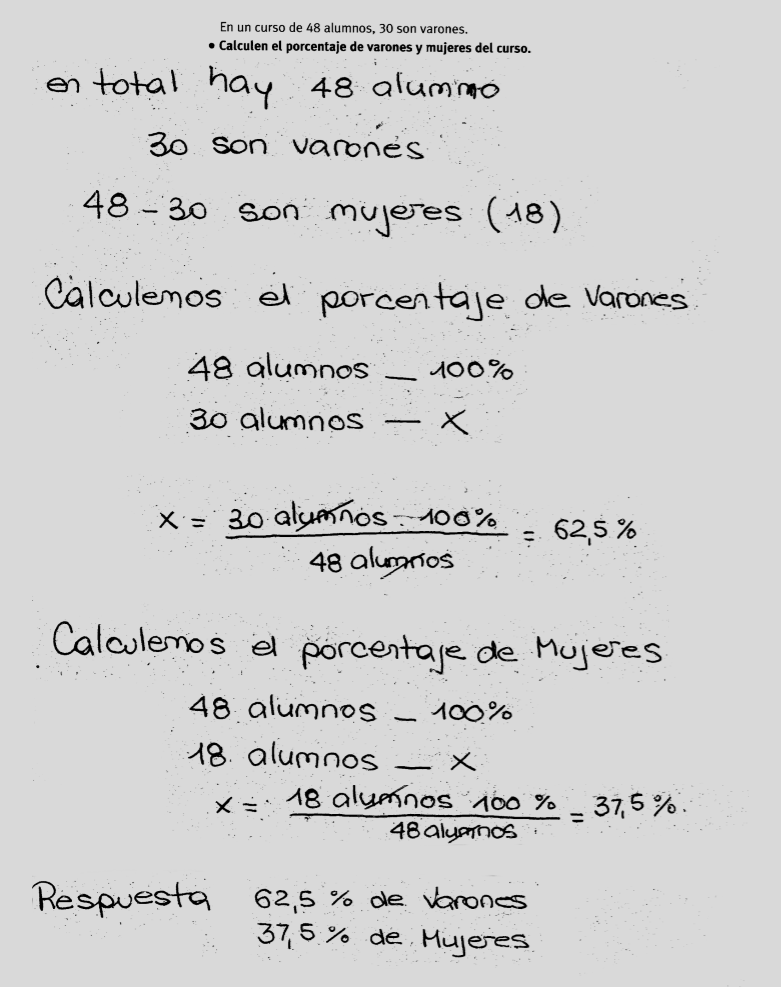 En un curso de 48 alumnos, 30 son varones.
• Calculen el porcentaje de varones y mujeres del curso.
en total hay 48 alummo
30 son varones
48 - 30 son mujeres (18)
Calculemos el porcentaje de Varones
48 alumnos — 100%
30 alumnos — X
X = 30 alumnos · 100% / 48 alumnos = 62,5 %
Calculemos el porcentaje de Mujeres
48 alumnos — 100%
18 alumnos — X
X = 18 alumnos 100 % / 48 alumnos = 37,5 %.
Respuesta 62,5 % de Varones
37,5 % de Mujeres